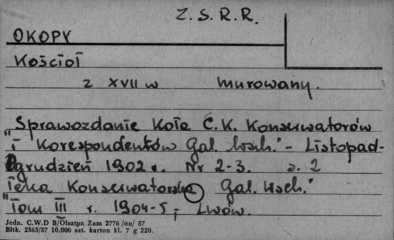 Z. S. R. R.
OKOPY
Kościoł
z XVII w murowany.
„Sprawozdanie Koła C.K. Konserwatorów
i Korespondentów Gal. Wsch." - Listopad-
grudzień 1902 r. Nr 2-3. s. 2
Teka Konserwatorska Gal. Wsch."
"Tom III r. 1904-5, Lwów.
Jedn. C.W.D B/Olsztyn Zam 2776/on/ 57
Błtk. 2563/57 10.000 szt. karton kl. 7 g 220.